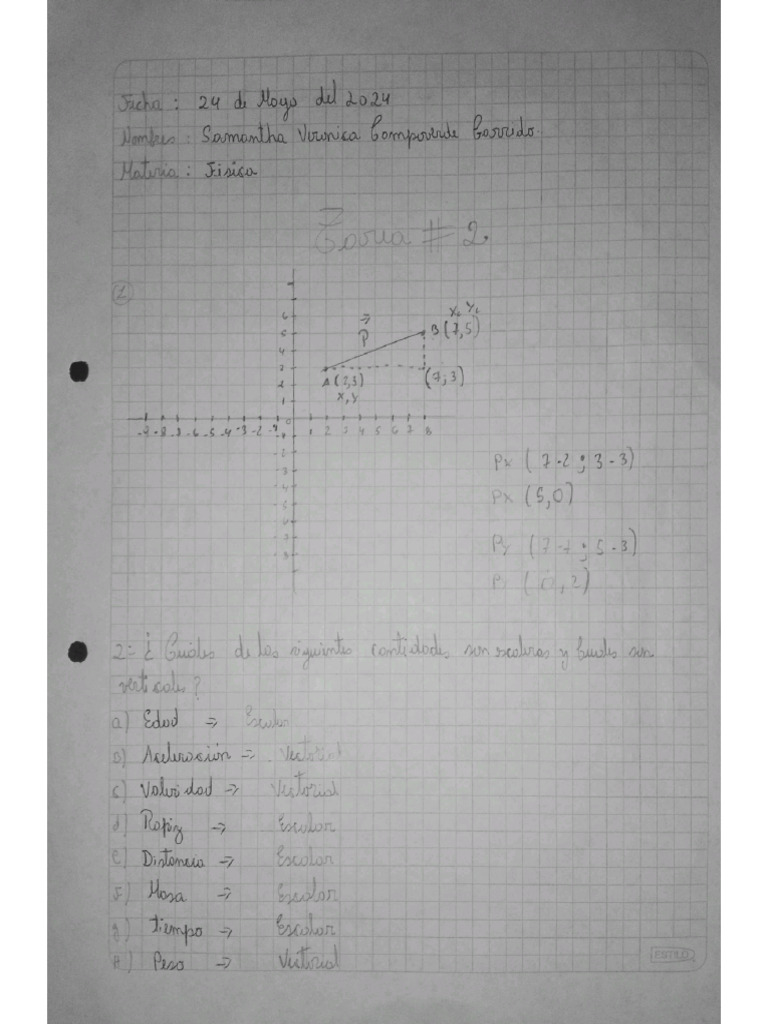 Fecha : 24 de Mayo del 2024
Nombres : Samantha Veronica Campoverde Garrido.
Materia : Fisica
Tarea # 2.
1
6
5
4
3
2
1
P
X₂ Y₂
B (7,5)
A (2,3)
X, Y
(7;3)
-9 -8 -7 -6 -5 -4 -3 -2 -1 0 1 2 3 4 5 6 7 8
Px ( 7-2 ; 3-3)
Px (5,0)
Py (7-7 ; 5-3)
Py (0,2)
2= ¿ Cuáles de las siguientes cantidades son escalares y cuales son
verticales ?
a) Edad → Escalar
b) Aceleración → Vectorial
c) Velocidad → Vectorial
d) Rapiz → Escalar
e) Distancia → Escalar
F) Masa → Escalar
g) Tiempo → Escalar
H) Peso → Vectorial
ESTILO